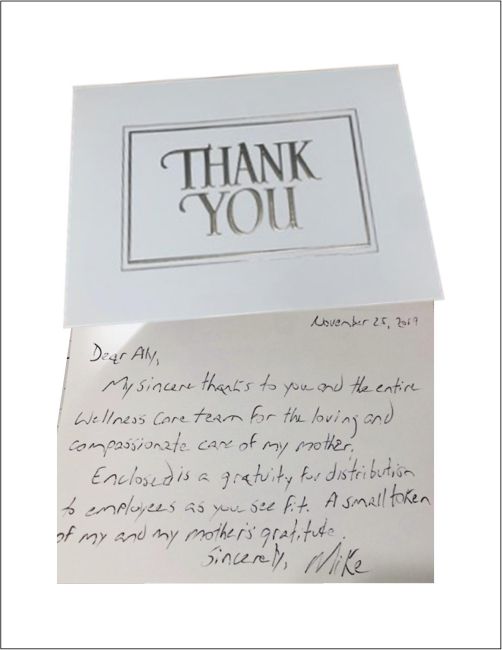 THANK
YOU
November 25, 2019
Dear Aly,
My sincere thanks to you and the entire
Wellness Care team for the loving and
compassionate care of my mother.
Enclosed is a gratuity for distribution
to employees as you see fit. A small token
of my and my mother's gratitude.
Sincerely, Mike